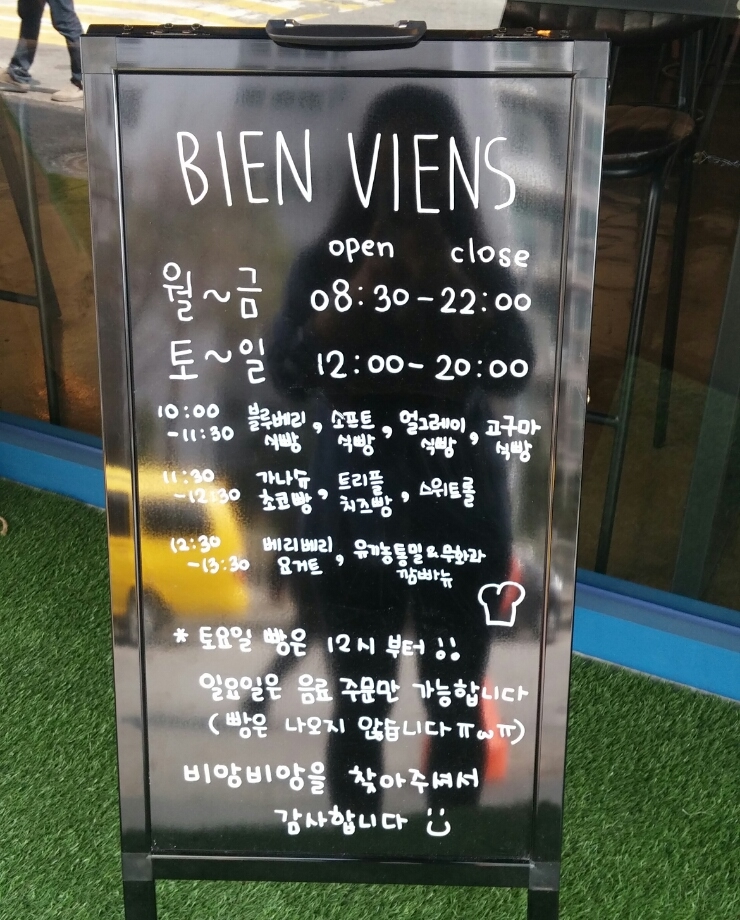 BIEN VIENS
open close
월~금 08:30-22:00
토~일 12:00-20:00
10:00 -11:30 블루베리 식빵, 소프트 식빵, 얼그레이 식빵, 고구마 식빵
11:30 -12:30 가나슈 초코빵, 트리플 치즈빵, 스위트롤
12:30 -13:30 베리베리 요거트, 유기농통밀&무화과 깜빠뉴
* 토요일 빵은 12시 부터!!
일요일은 음료 주문만 가능합니다
(빵은 나오지 않습니다 ㅠωㅠ)
비앙비앙을 찾아주셔서
감사합니다